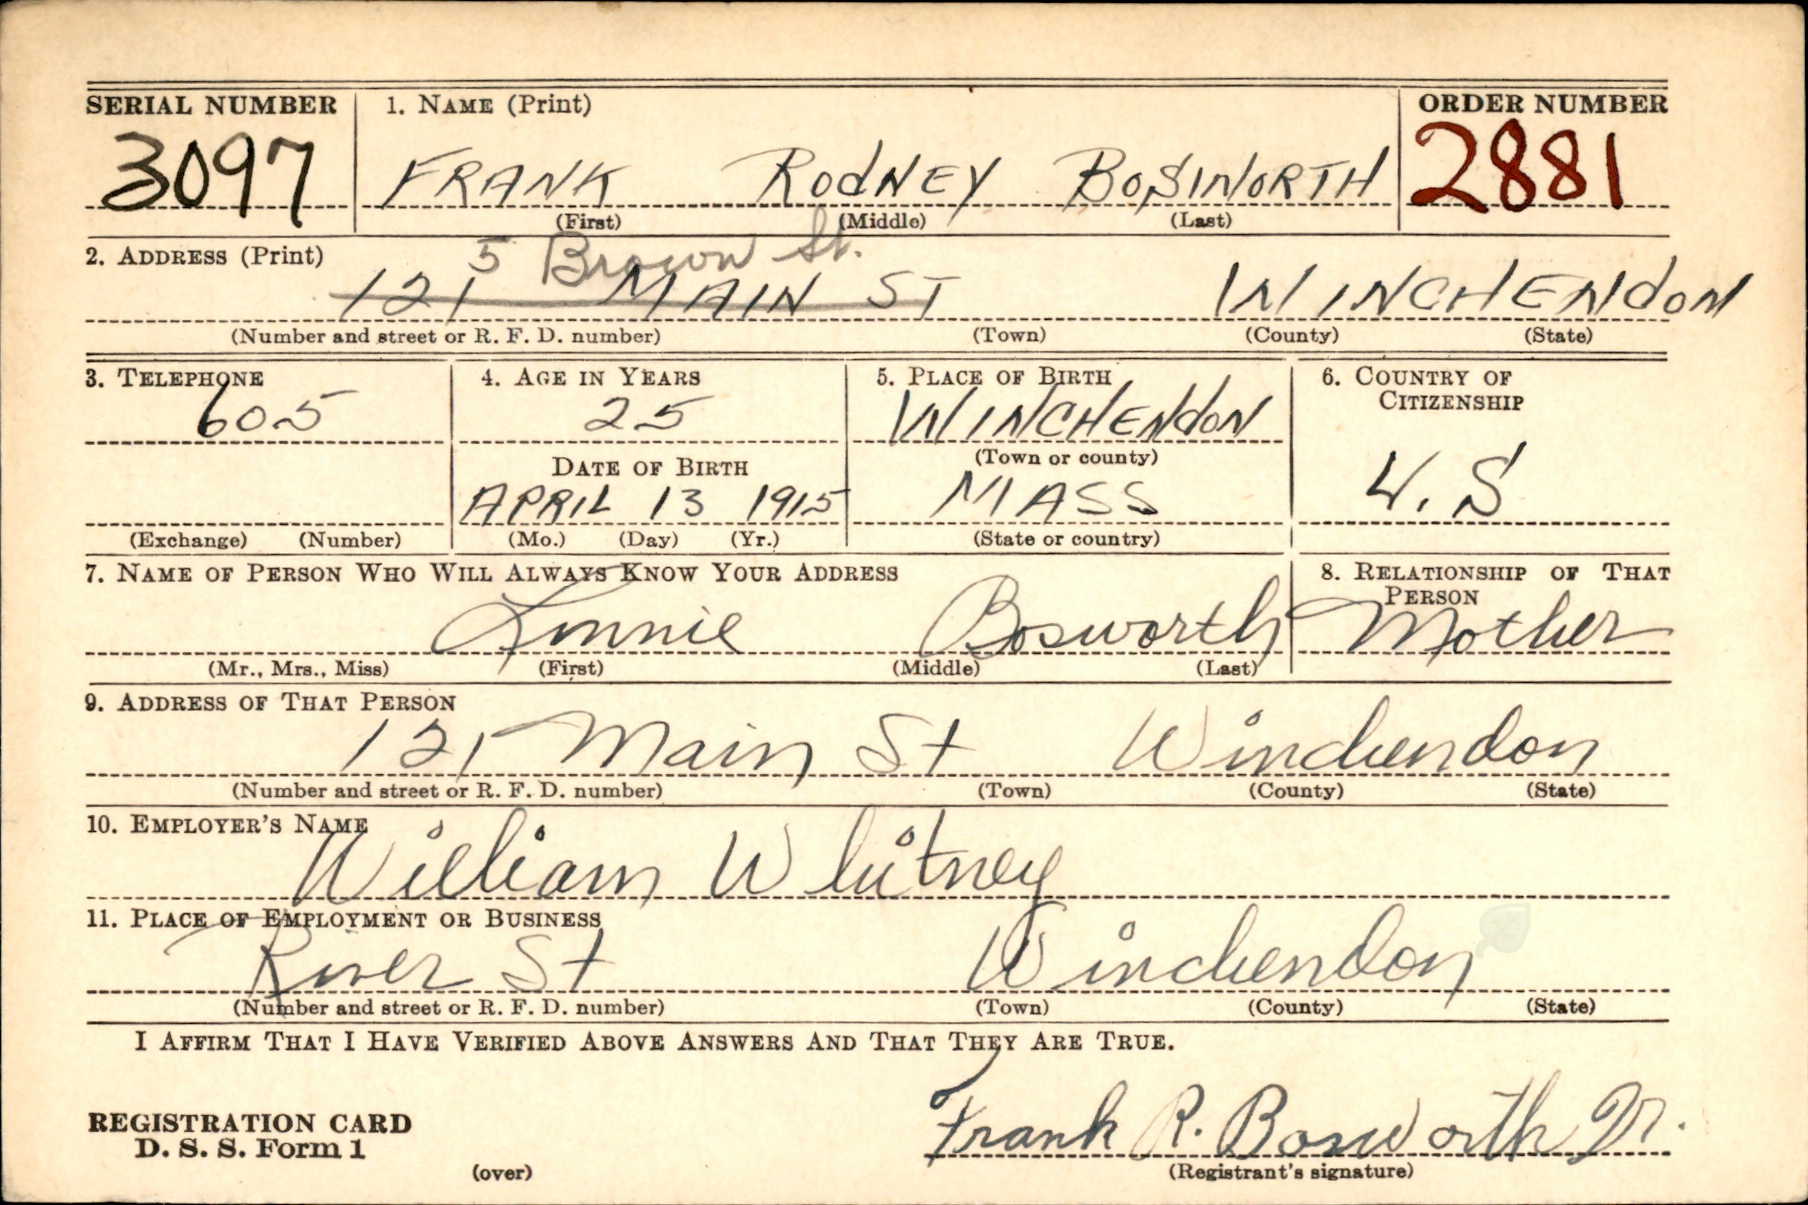 SERIAL NUMBER 1. NAME (Print) ORDER NUMBER
3097 FRANK RODNEY BOSWORTH 2881
(First) (Middle) (Last)
2. ADDRESS (Print) 5 Brown St.
121 MAIN ST WINCHENDON
(Number and street or R. F. D. number) (Town) (County) (State)
3. TELEPHONE 4. AGE IN YEARS 5. PLACE OF BIRTH 6. COUNTRY OF
CITIZENSHIP
605 25 WINCHENDON
DATE OF BIRTH (Town or county)
APRIL 13 1915 MASS U.S
(Exchange) (Number) (Mo.) (Day) (Yr.) (State or country)
7. NAME OF PERSON WHO WILL ALWAYS KNOW YOUR ADDRESS 8. RELATIONSHIP OF THAT
PERSON
Linnie Bosworth Mother
(Mr., Mrs., Miss) (First) (Middle) (Last)
9. ADDRESS OF THAT PERSON
121 Main St Winchendon
(Number and street or R. F. D. number) (Town) (County) (State)
10. EMPLOYER'S NAME
William Whitney
11. PLACE OF EMPLOYMENT OR BUSINESS
River St Winchendon
(Number and street or R. F. D. number) (Town) (County) (State)
I AFFIRM THAT I HAVE VERIFIED ABOVE ANSWERS AND THAT THEY ARE TRUE.
Frank R. Bosworth Jr.
REGISTRATION CARD
D. S. S. Form 1
(over) (Registrant's signature)